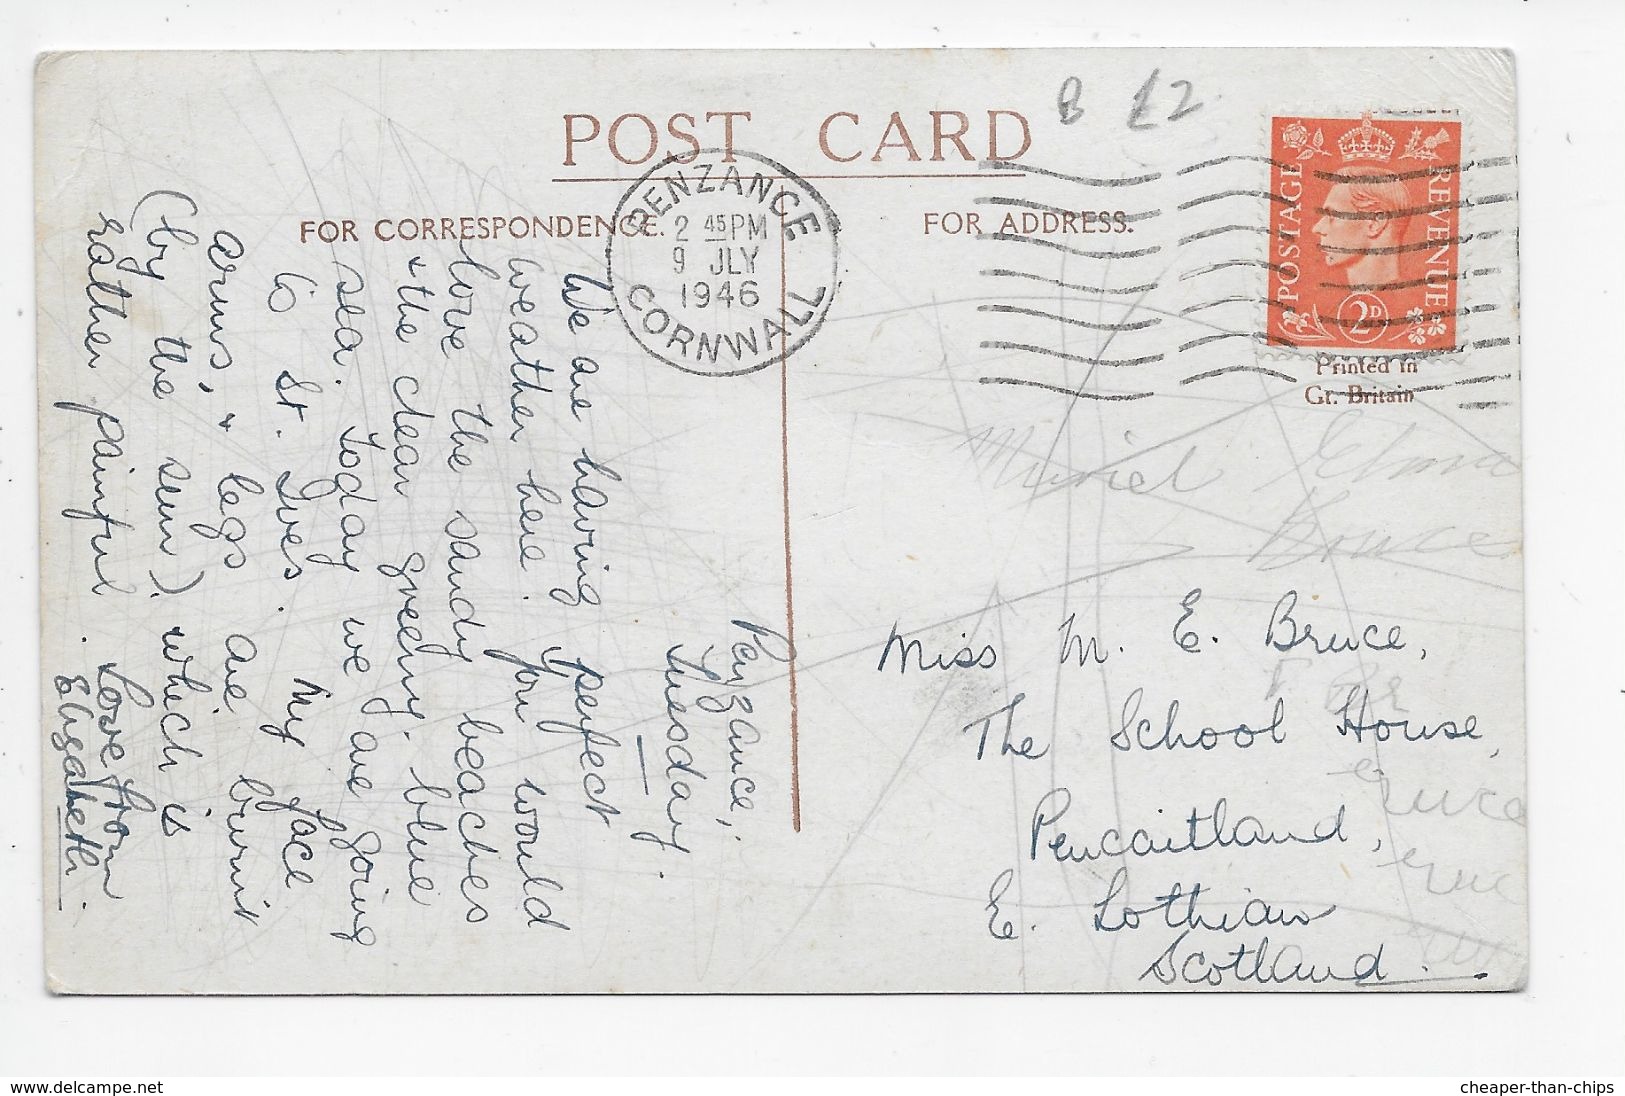 B £2
POST CARD
FOR CORRESPONDENCE.
FOR ADDRESS.
PENZANCE
2 45 PM
9 JLY
1946
CORNWALL
POSTAGE
REVENUE
2D
Printed in
Gt. Britain
Penzance,
Tuesday.
We are having perfect
weather here. You would
love the sandy beaches
& the clear greeny-blue
sea. Today we are going
to St. Ives. My face
arms, & legs are burnt
(by the sun) which is
rather painful.
Love from
Elizabeth.
Muriel
Bruce
Miss M. E. Bruce,
The School House,
Pencaitland,
E. Lothian
Scotland.
www.delcampe.net
cheaper-than-chips